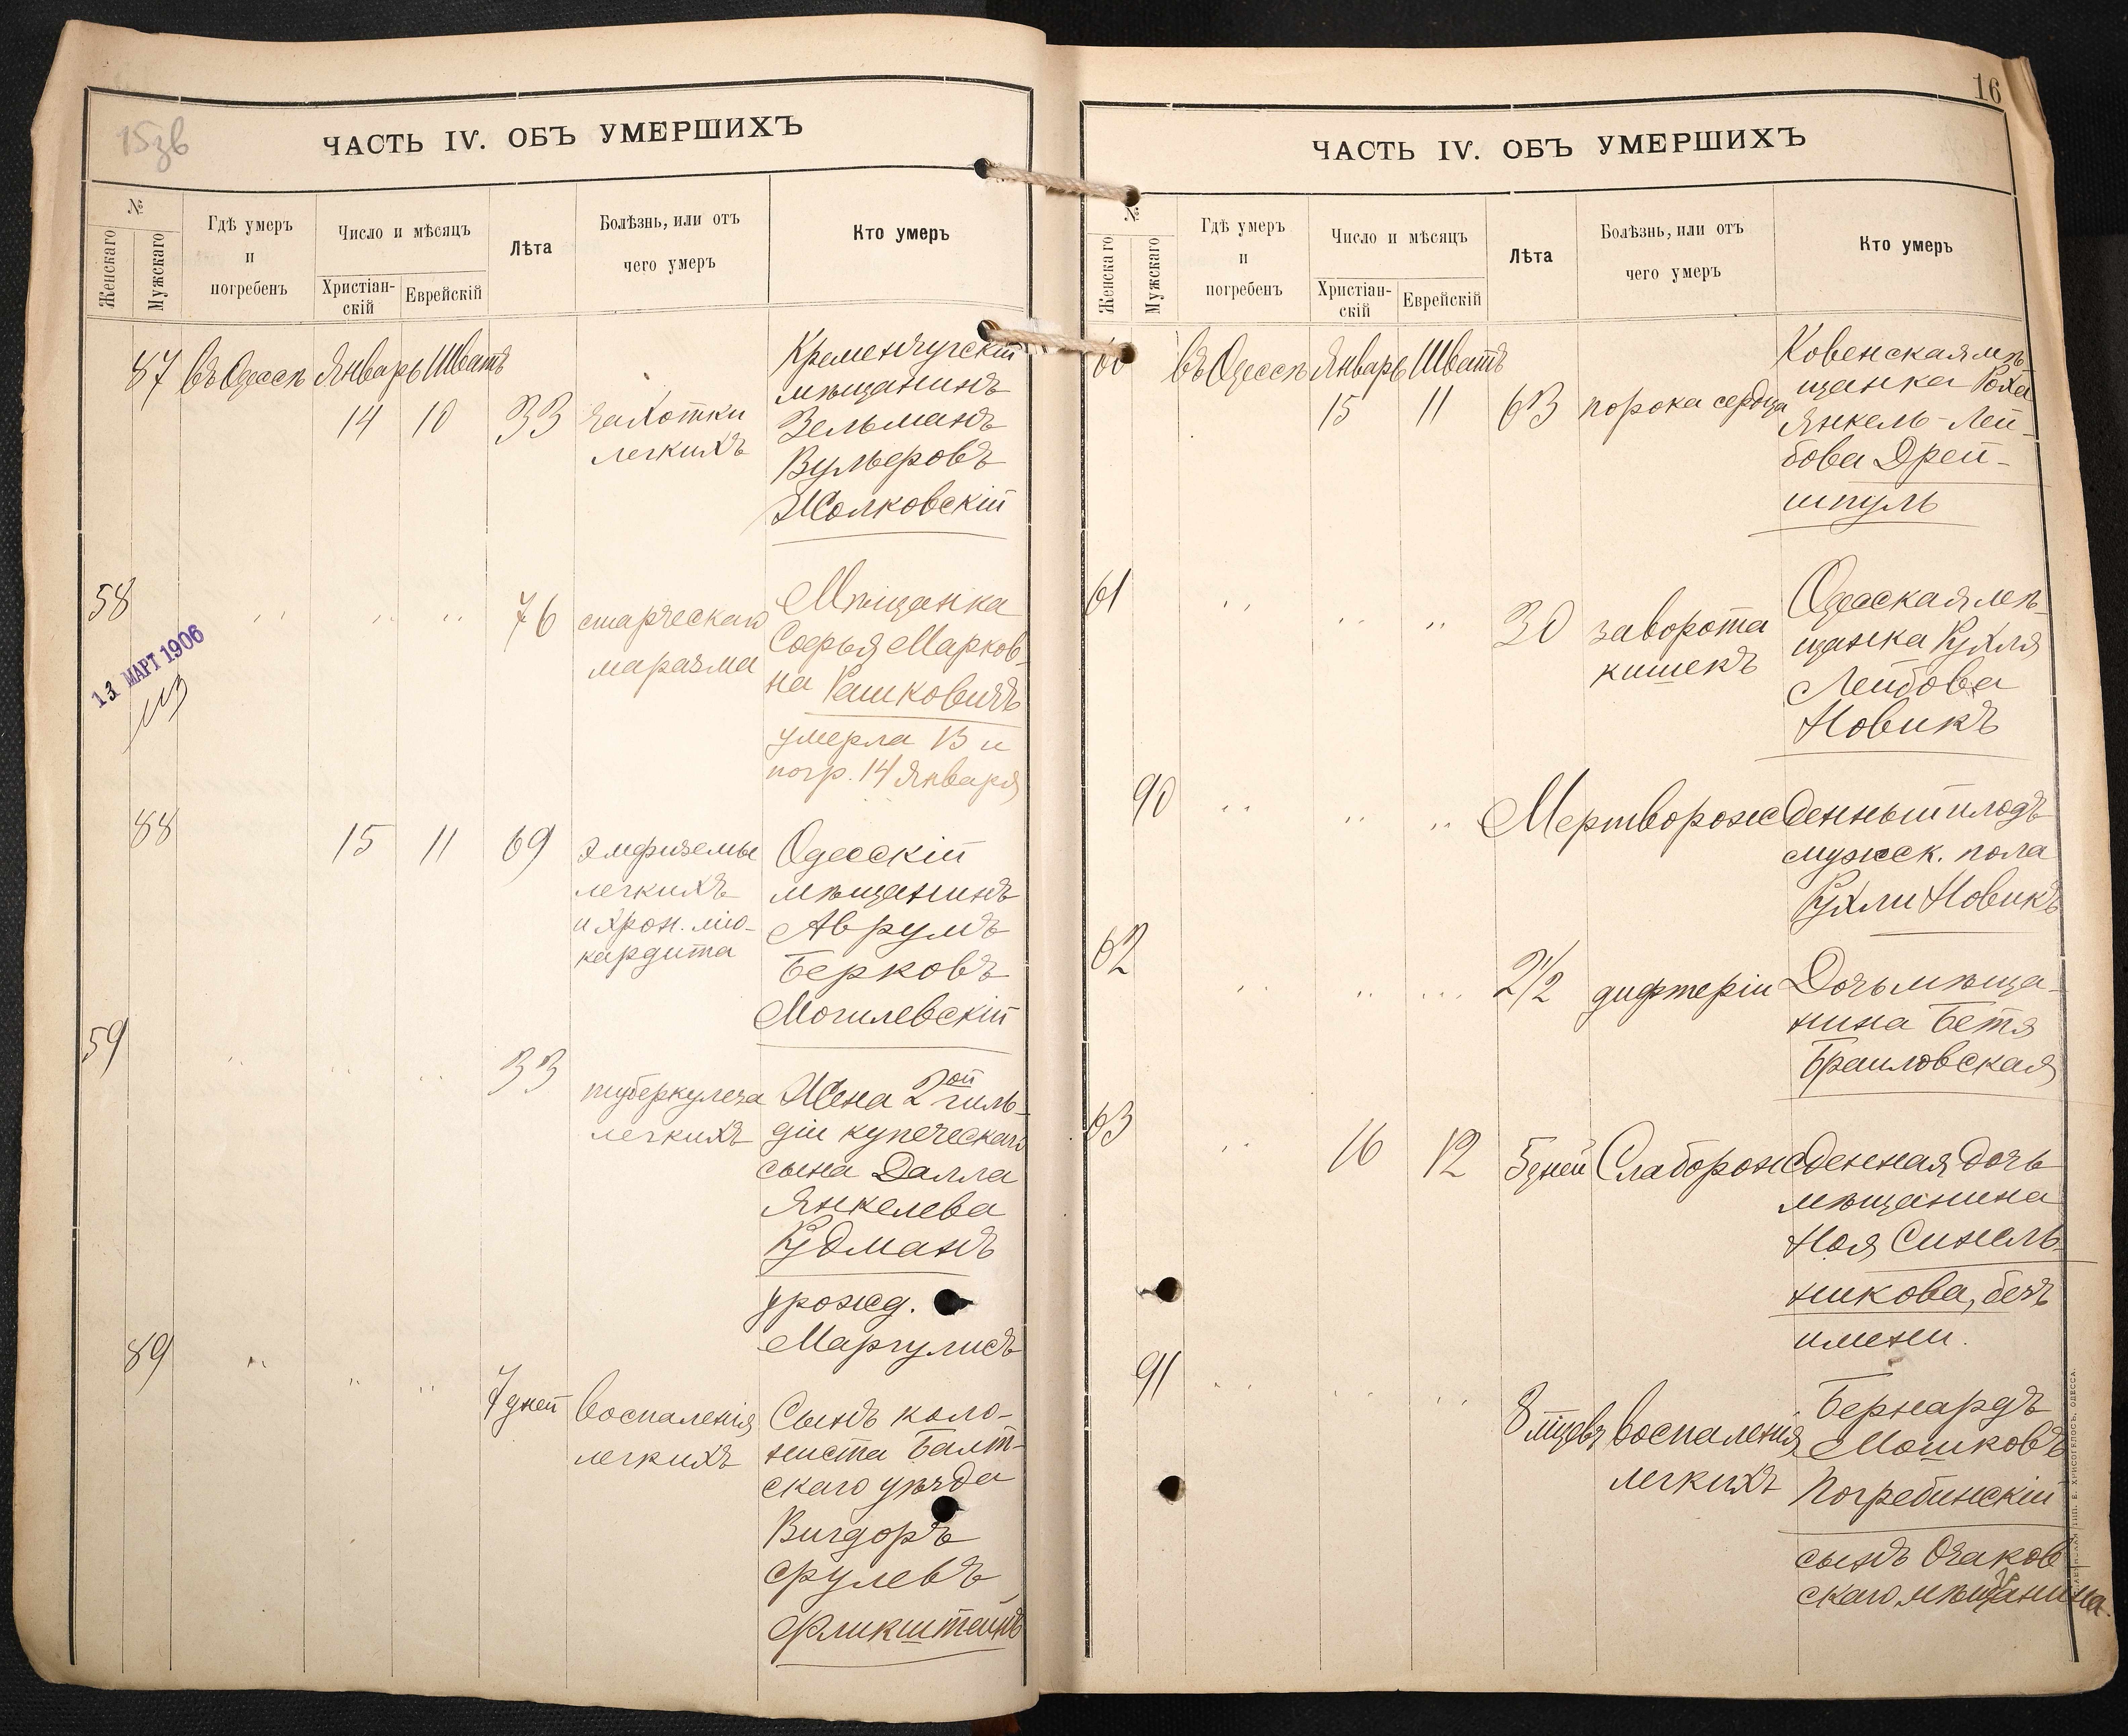 15зв
ЧАСТЬ IV. ОБЪ УМЕРШИХЪ
№
Женскаго
Мужскаго
Гдѣ умеръ
и
погребенъ
Число и мѣсяцъ
Христіан-
скій
Еврейскій
Лѣта
Болѣзнь, или отъ
чего умеръ
Кто умеръ
87 въ Одессѣ Январь Шватъ
14 10 33 чахотки
легкихъ
Кременчугскій
мѣщанинъ
Зельманъ
Вульфовъ
Жолковскій
58 " " " 76 старческаго
маразма
Мѣщанка
Софья Марков-
на Рашковичъ
умерла 13 и
погр. 14 Января
13 МАРТ 1906
88 15 11 69 эмфиземы
легкихъ
и хрон. міо-
кардита
Одесскій
мѣщанинъ
Аврумъ
Берковъ
Могилевскій
59 " " " 33 туберкулеза
легкихъ
Жена 2ой гиль-
діи купеческаго
сына Далла
Янкелева
Рудманъ
урожд.
Маргулисъ
89 " " " 7 дней воспаленія
легкихъ
Сынъ коло-
ниста Балт-
скаго уѣзда
Вигдоръ
Срулевъ
Фликштейнъ
16
ЧАСТЬ IV. ОБЪ УМЕРШИХЪ
№
Женскаго
Мужскаго
Гдѣ умеръ
и
погребенъ
Число и мѣсяцъ
Христіан-
скій
Еврейскій
Лѣта
Болѣзнь, или отъ
чего умеръ
Кто умеръ
60 въ Одессѣ Январь Шватъ
15 11 63 порока сердца
Ковенская мѣ-
щанка Роха
Янкель-Лей-
бова Дрей-
шпуль
61 " " " 30 заворота
кишекъ
Одесская мѣ-
щанка Рухля
Лейбова
Новикъ
90 " " " Мертворожденный плодъ
мужск. пола
Рухли Новикъ
62 " " " 2 1/2 дифтеріи
Дочь мѣща-
нина Бетя
Браиловская
63 " 16 12 5 дней Слаборожденная дочь
мѣщанина
Ноя Синель-
никова, безъ
имени.
91 " " " 8 мѣцевъ воспаленія
легкихъ
Бернардъ
Мошковъ
Погребинскій
сынъ Очаков-
скаго мѣщанина.
ТИП. Е. ХРИСОГЕЛОСЪ, ОДЕССА.